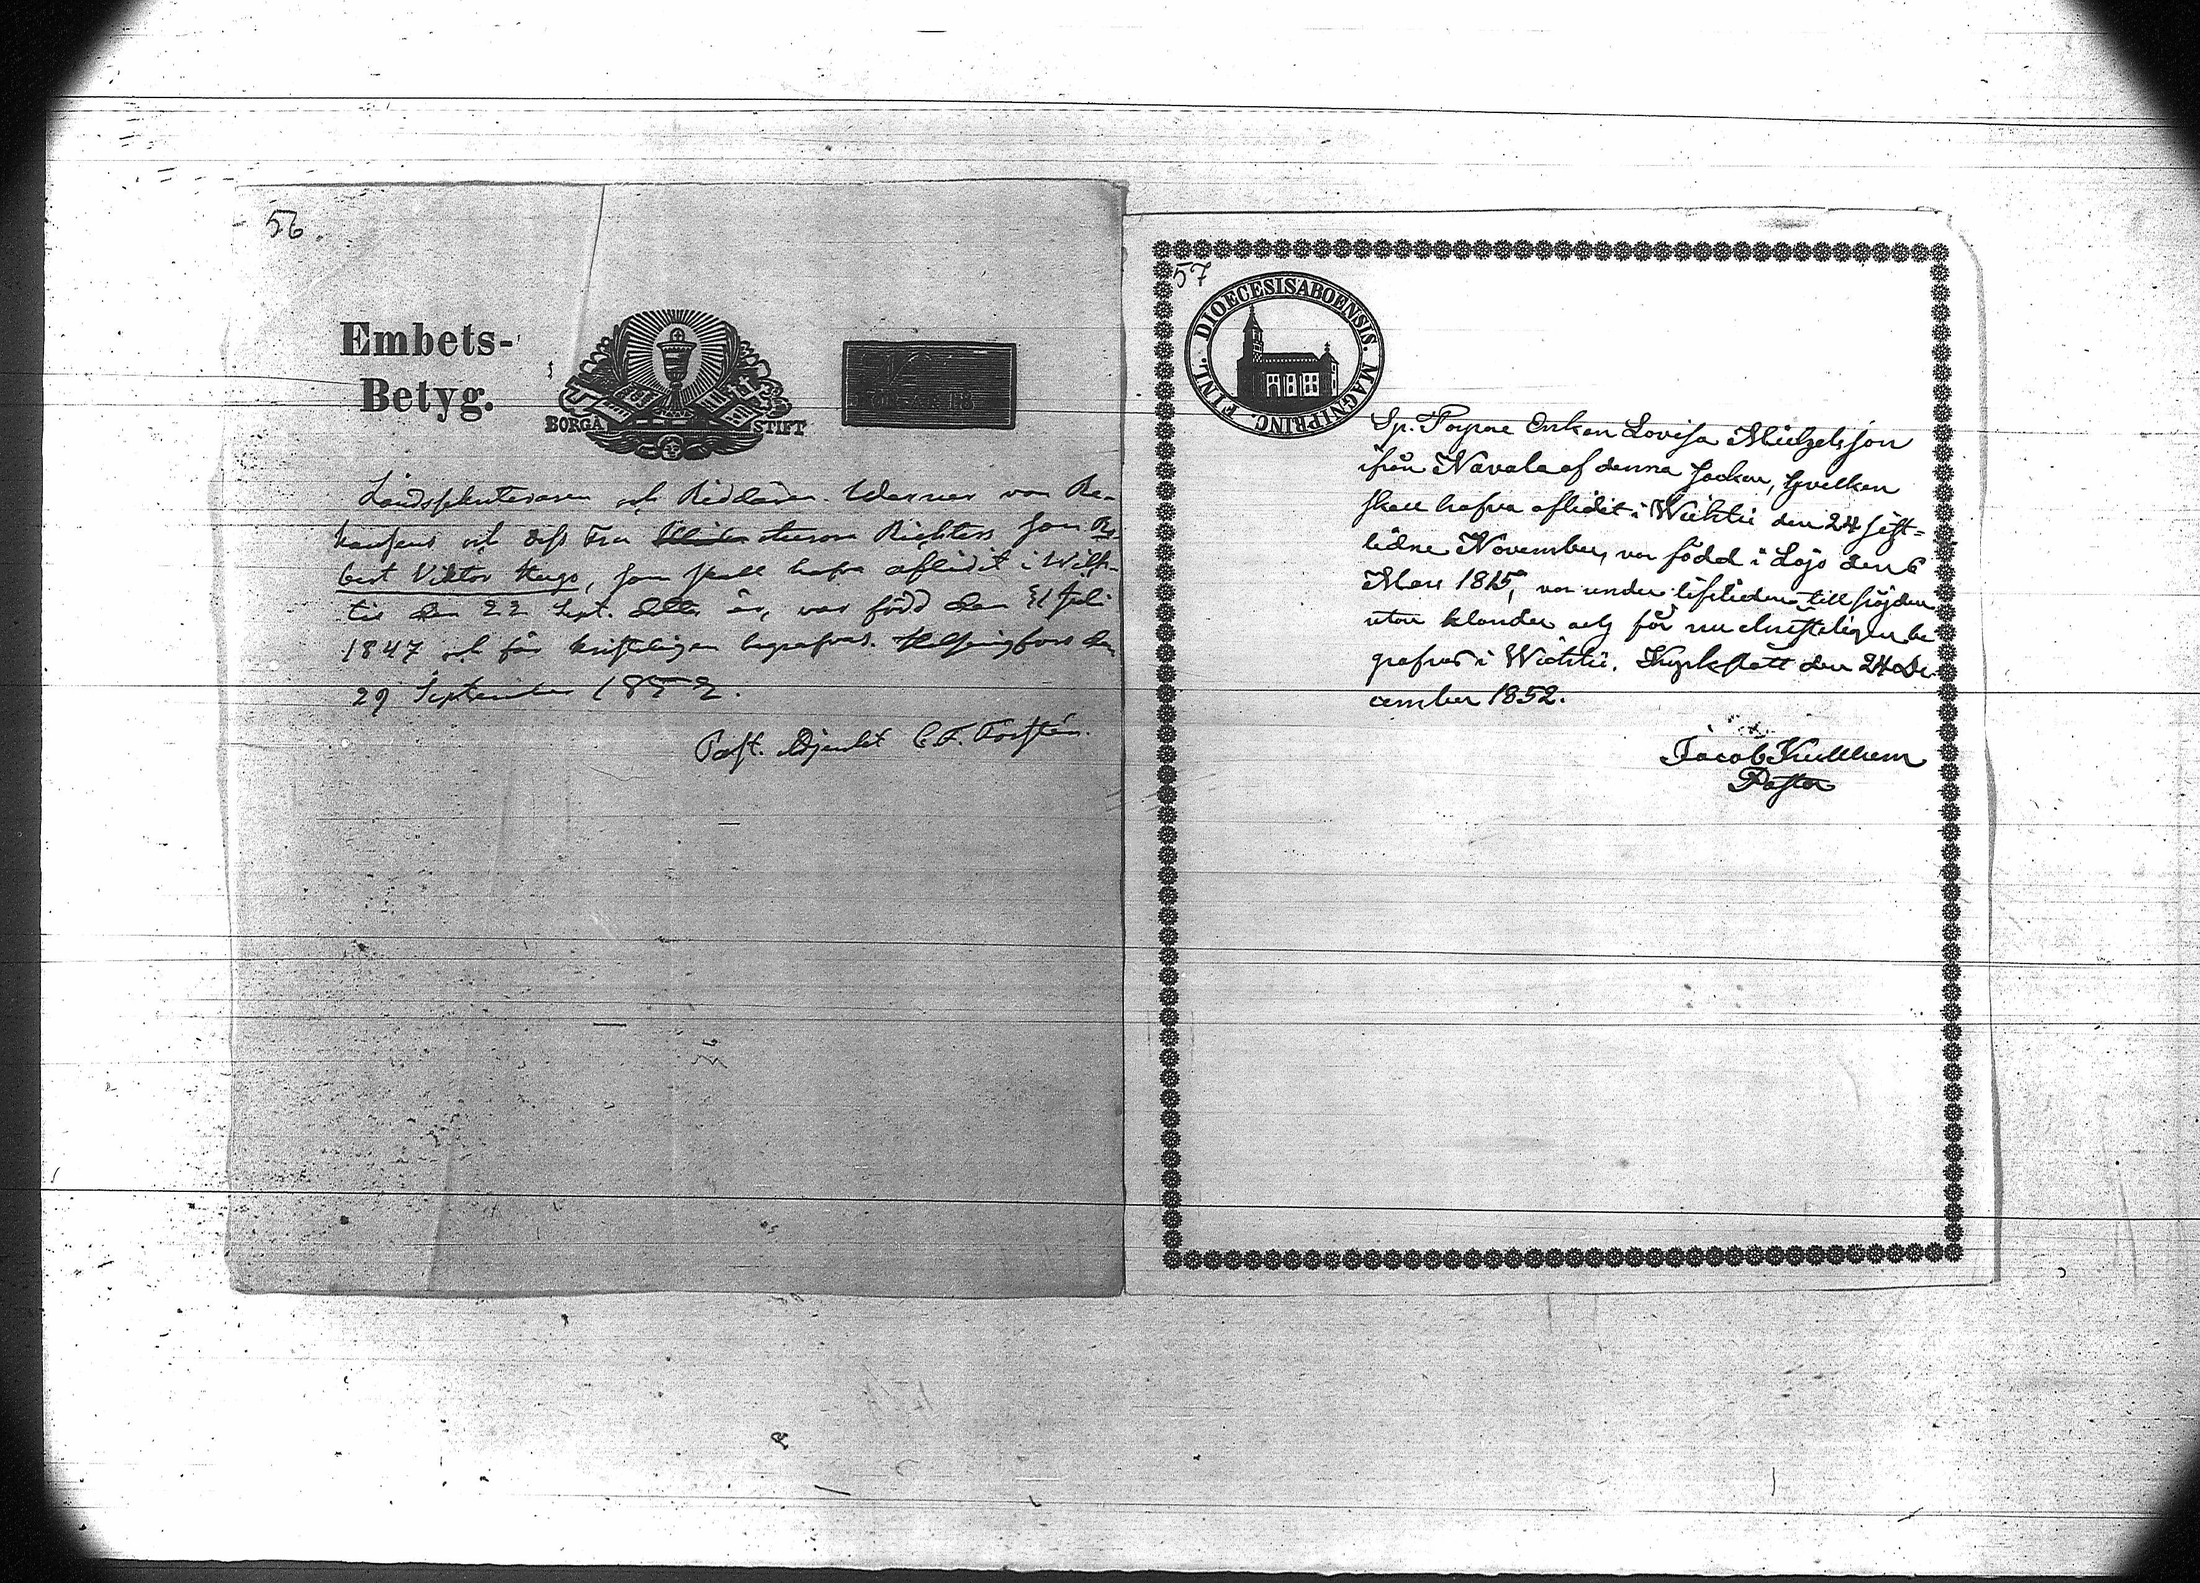 56.
Embets-
Betyg.
BORGA STIFT
och Riddaren Werner von
och dess Fru Richters son
bert Viktor Hugo, som skall hafva aflidit i Wikh-
tis den 22 Sept. detta år, var född den 31 Juli
1847 och får kristeligen begrafvas. Helsingfors den
29 September 1852.
Past. Adjunkt C. F. Forstén.
57
DIOECESISABOENSIS. MAGNIPRINC. FINL.
Enkan Lovisa
ifrån Navala af denna Socken, hvilken
skall hafva aflidit i Wichtis den 24 sist-
lidne November, var född i Lojo den 6
Mars 1815, var under lifstiden till frejden
utan klander och får nu christeligen be
grafvas i Wichtis. Kyrkslätt den 24 De
cember 1852.
Jacob
Pastor